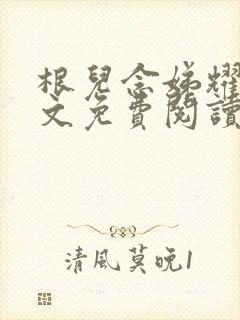 根兒念娣耀
文免費閱讀
清風莫晚1